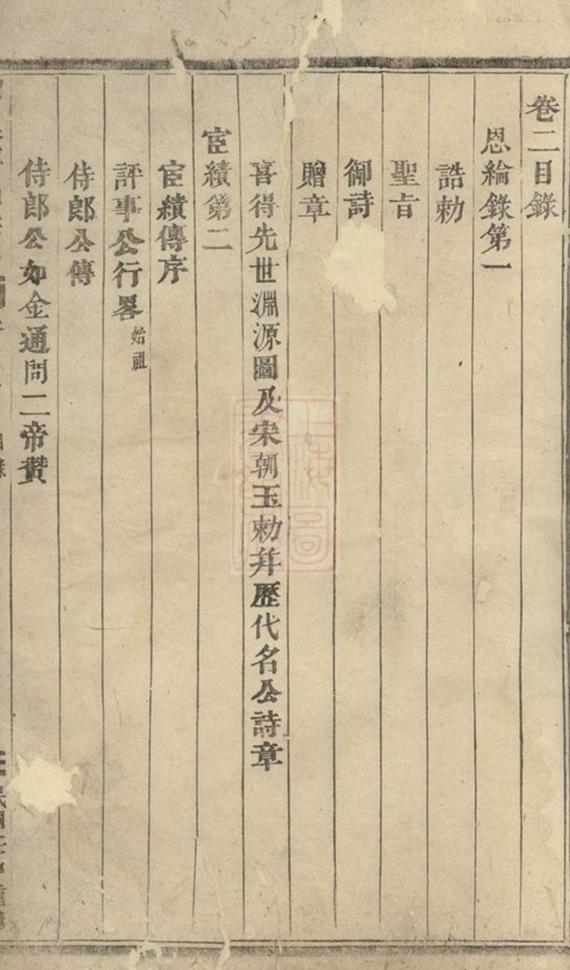 卷二目錄
恩綸錄第一
誥勅
聖旨
御詩
贈章
喜得先世淵源圖及宋朝玉勅并歷代名公詩章
宦績第二
宦績傳序
評事公行畧始祖
侍郎公傳
侍郎公如金通問二帝贊